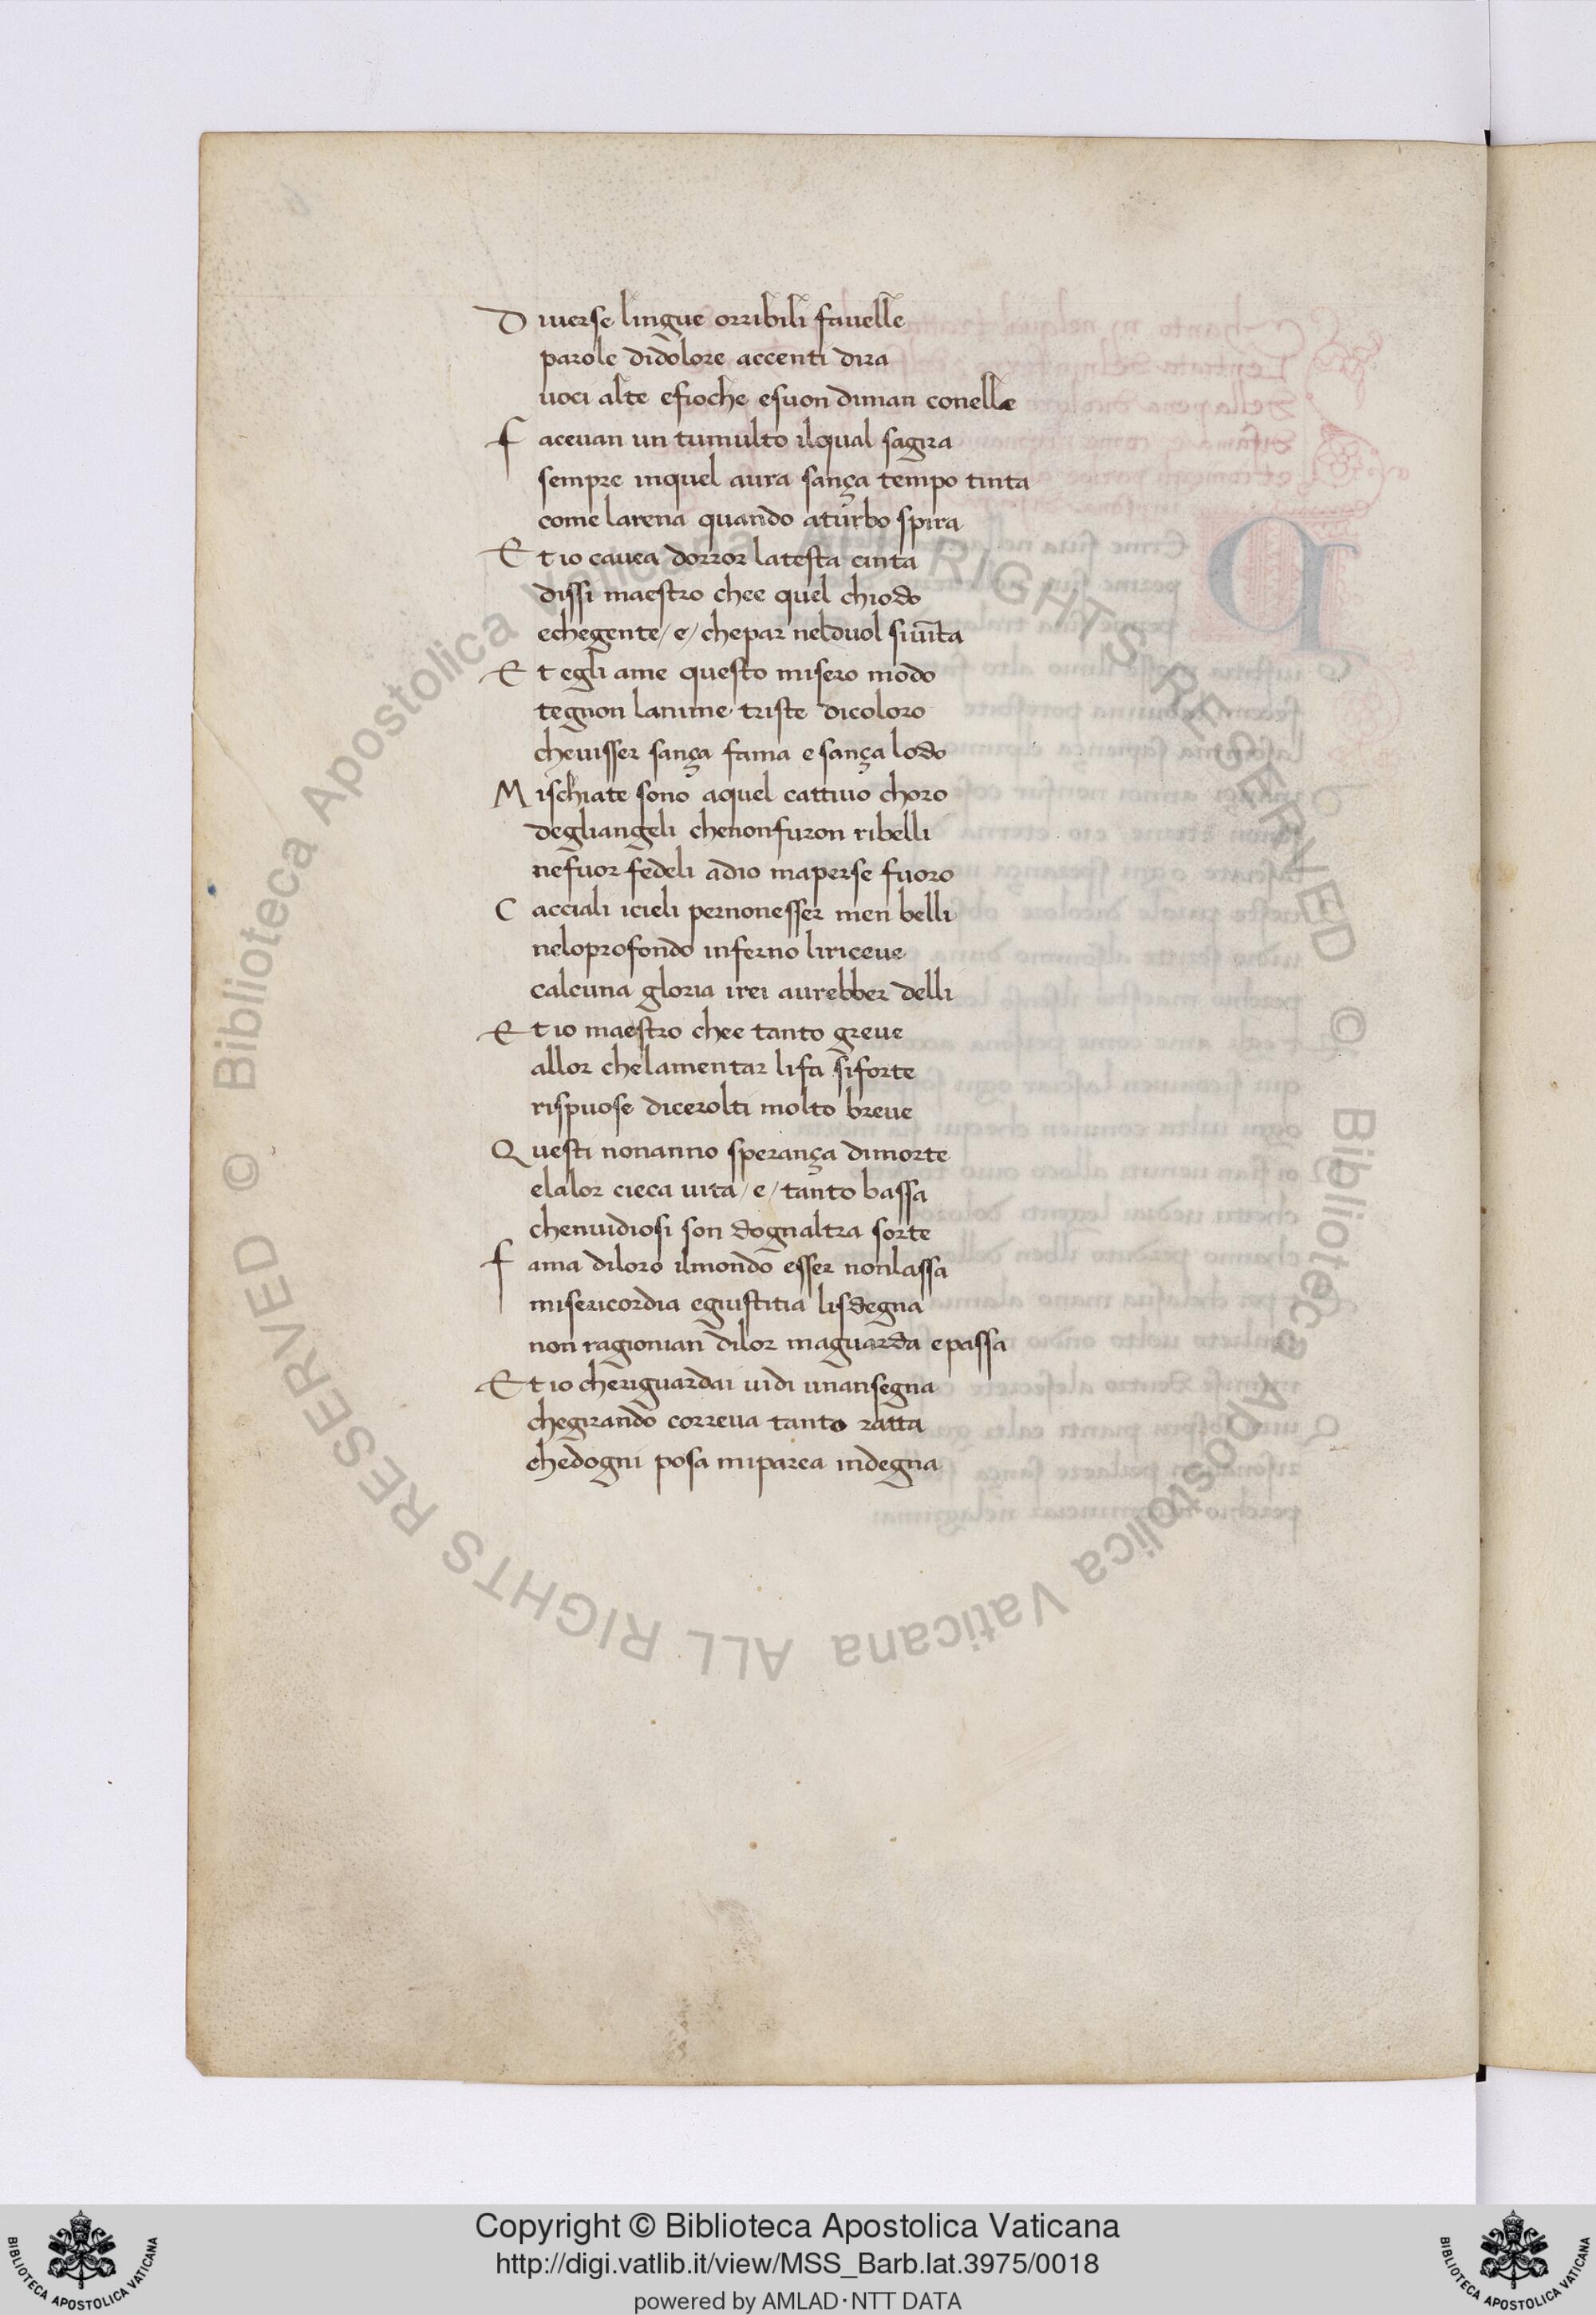 D iuerse lingue orribili fauelle
parole didolore accenti dira
uoci alte efioche esuon diman conelle
f aceuan un tumulto ilqual sagira
sempre inquel aura sança tempo tinta
come larena quando aturbo spira
E t io cauea dorror latesta cinta
dissi maestro chee quel chiodo
echegente /e/ chepar nelduol siuīta
E t egli ame questo misero modo
tegnon lanime triste dicoloro
cheuisser sança fama e sança lodo
M ischiate sono aquel cattiuo choro
degliangeli chenonfuron ribelli
nefuor fedeli adio maperse fuoro
C acciali icieli pernonesser men belli
neloprofondo inferno liriceue
calcuna gloria irei aurebber delli
E t io maestro chee tanto greue
allor chelamentar lifa siforte
rispuose dicerolti molto breue
Q uesti nonanno sperança dimorte
elalor cieca uita /e/ tanto bassa
chenuidiosi son dognaltra sorte
f ama diloro ilmondo esser nonlassa
misericordia egiustitia lisdegna
non ragionian dilor maguarda epassa
E t io cheriguardai uidi unansegna
chegirando correua tanto ratta
chedogni posa miparea indegna
Biblioteca Apostolica Vaticana ALL RIGHTS RESERVED ©
Biblioteca Apostolica Vaticana ALL RIGHTS RESERVED ©
Copyright © Biblioteca Apostolica Vaticana
http://digi.vatlib.it/view/MSS_Barb.lat.3975/0018
powered by AMLAD·NTT DATA
BIBLIOTECA APOSTOLICA VATICANA
BIBLIOTECA APOSTOLICA VATICANA